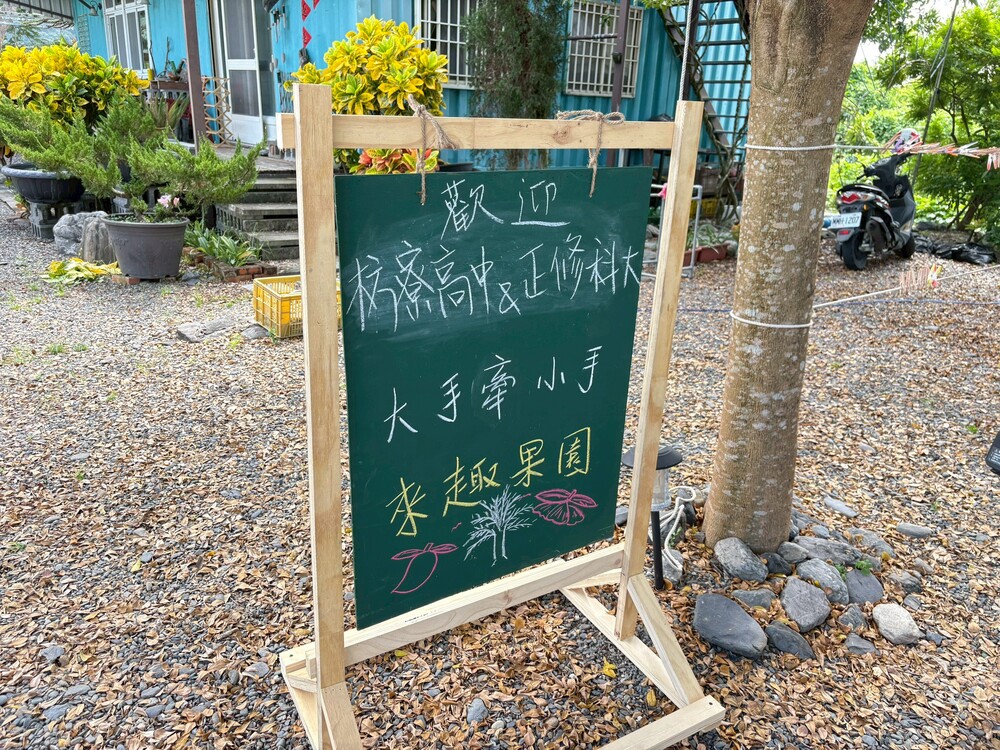 歡迎
枋寮高中&正修科大
大手牽小手
來趣果園